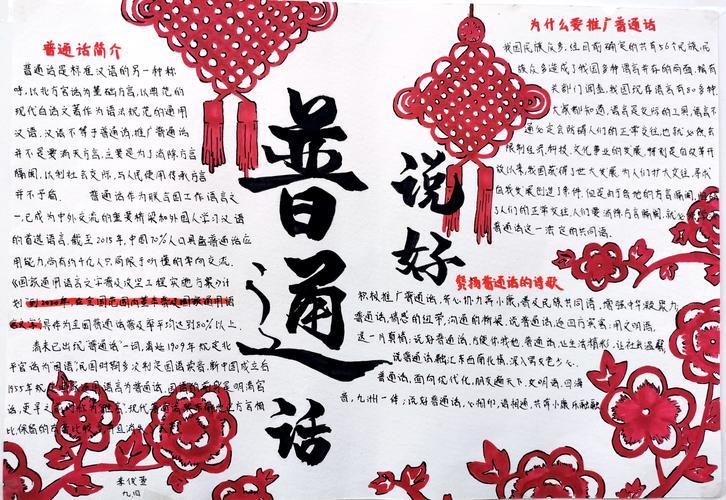 普通话简介
普通话是标准汉语的另一种称
呼,以北方官话为基础方言,以典范的
现代白话文著作为语法规范的通用
汉语。汉语不等于普通话,推广普通话
并不是要消灭方言,主要是为了消除方言
隔阂,以利社会交际,与人民使用传承方言
并不矛盾。 普通话作为联合国工作语言之
一,已成为中外交流的重要桥梁和外国人学习汉语
的首选语言。截至2015年,中国70%人口具备普通话应
用能力,尚有约4亿人只局限于听懂的单向交流。
《国家通用语言文字普及攻坚工程实施方案》计
划到2020年,在全国范围内基本普及国家通用语
言文字,具体为全国普通话普及率平均达到80%以上。
清末已出现"普通话"一词,清廷1909年规定北
平官话为"国语",民国时期多次制定国语读音,新中国成立后
1955年规定
说好
普通话
为什么要推广普通话
我国民族众多,经目前确定的共有56个民族,民
族众多造成了我国多种语言并存的局面。据有
关部门调查,我国现存语言有80多种
大家都知道,语言是交际的工具,语言不
通必定会妨碍人们的正常交往,也就必然会
限制经济、科技、文化事业的发展。特别是自改革开
放以来,我国获得了巨大发展,为人们扩大交往、寻求
自我发展创造了条件。但是由于各地的方言隔阂,
了人们的正常交往,人们要消除方言隔阂,就必
普通话这一法定的共同语。
赞扬普通话的诗歌
积极推广普通话,齐心协力奔小康;普及民族共同语,增强中华凝聚力
普通话,情感的纽带,沟通的桥梁;说普通话,迎四方宾客;用文明语,
这一片真情;说好普通话,方便你我他,普通话,让生活精彩,让社会温馨,
说普通话融汇东西南北情,深入男女老少心。
普通话,面向现代化,朋友遍天下,文明语,四海
春,九州一体;说好普通话,心相印,语相通,共奔小康乐融融
九四